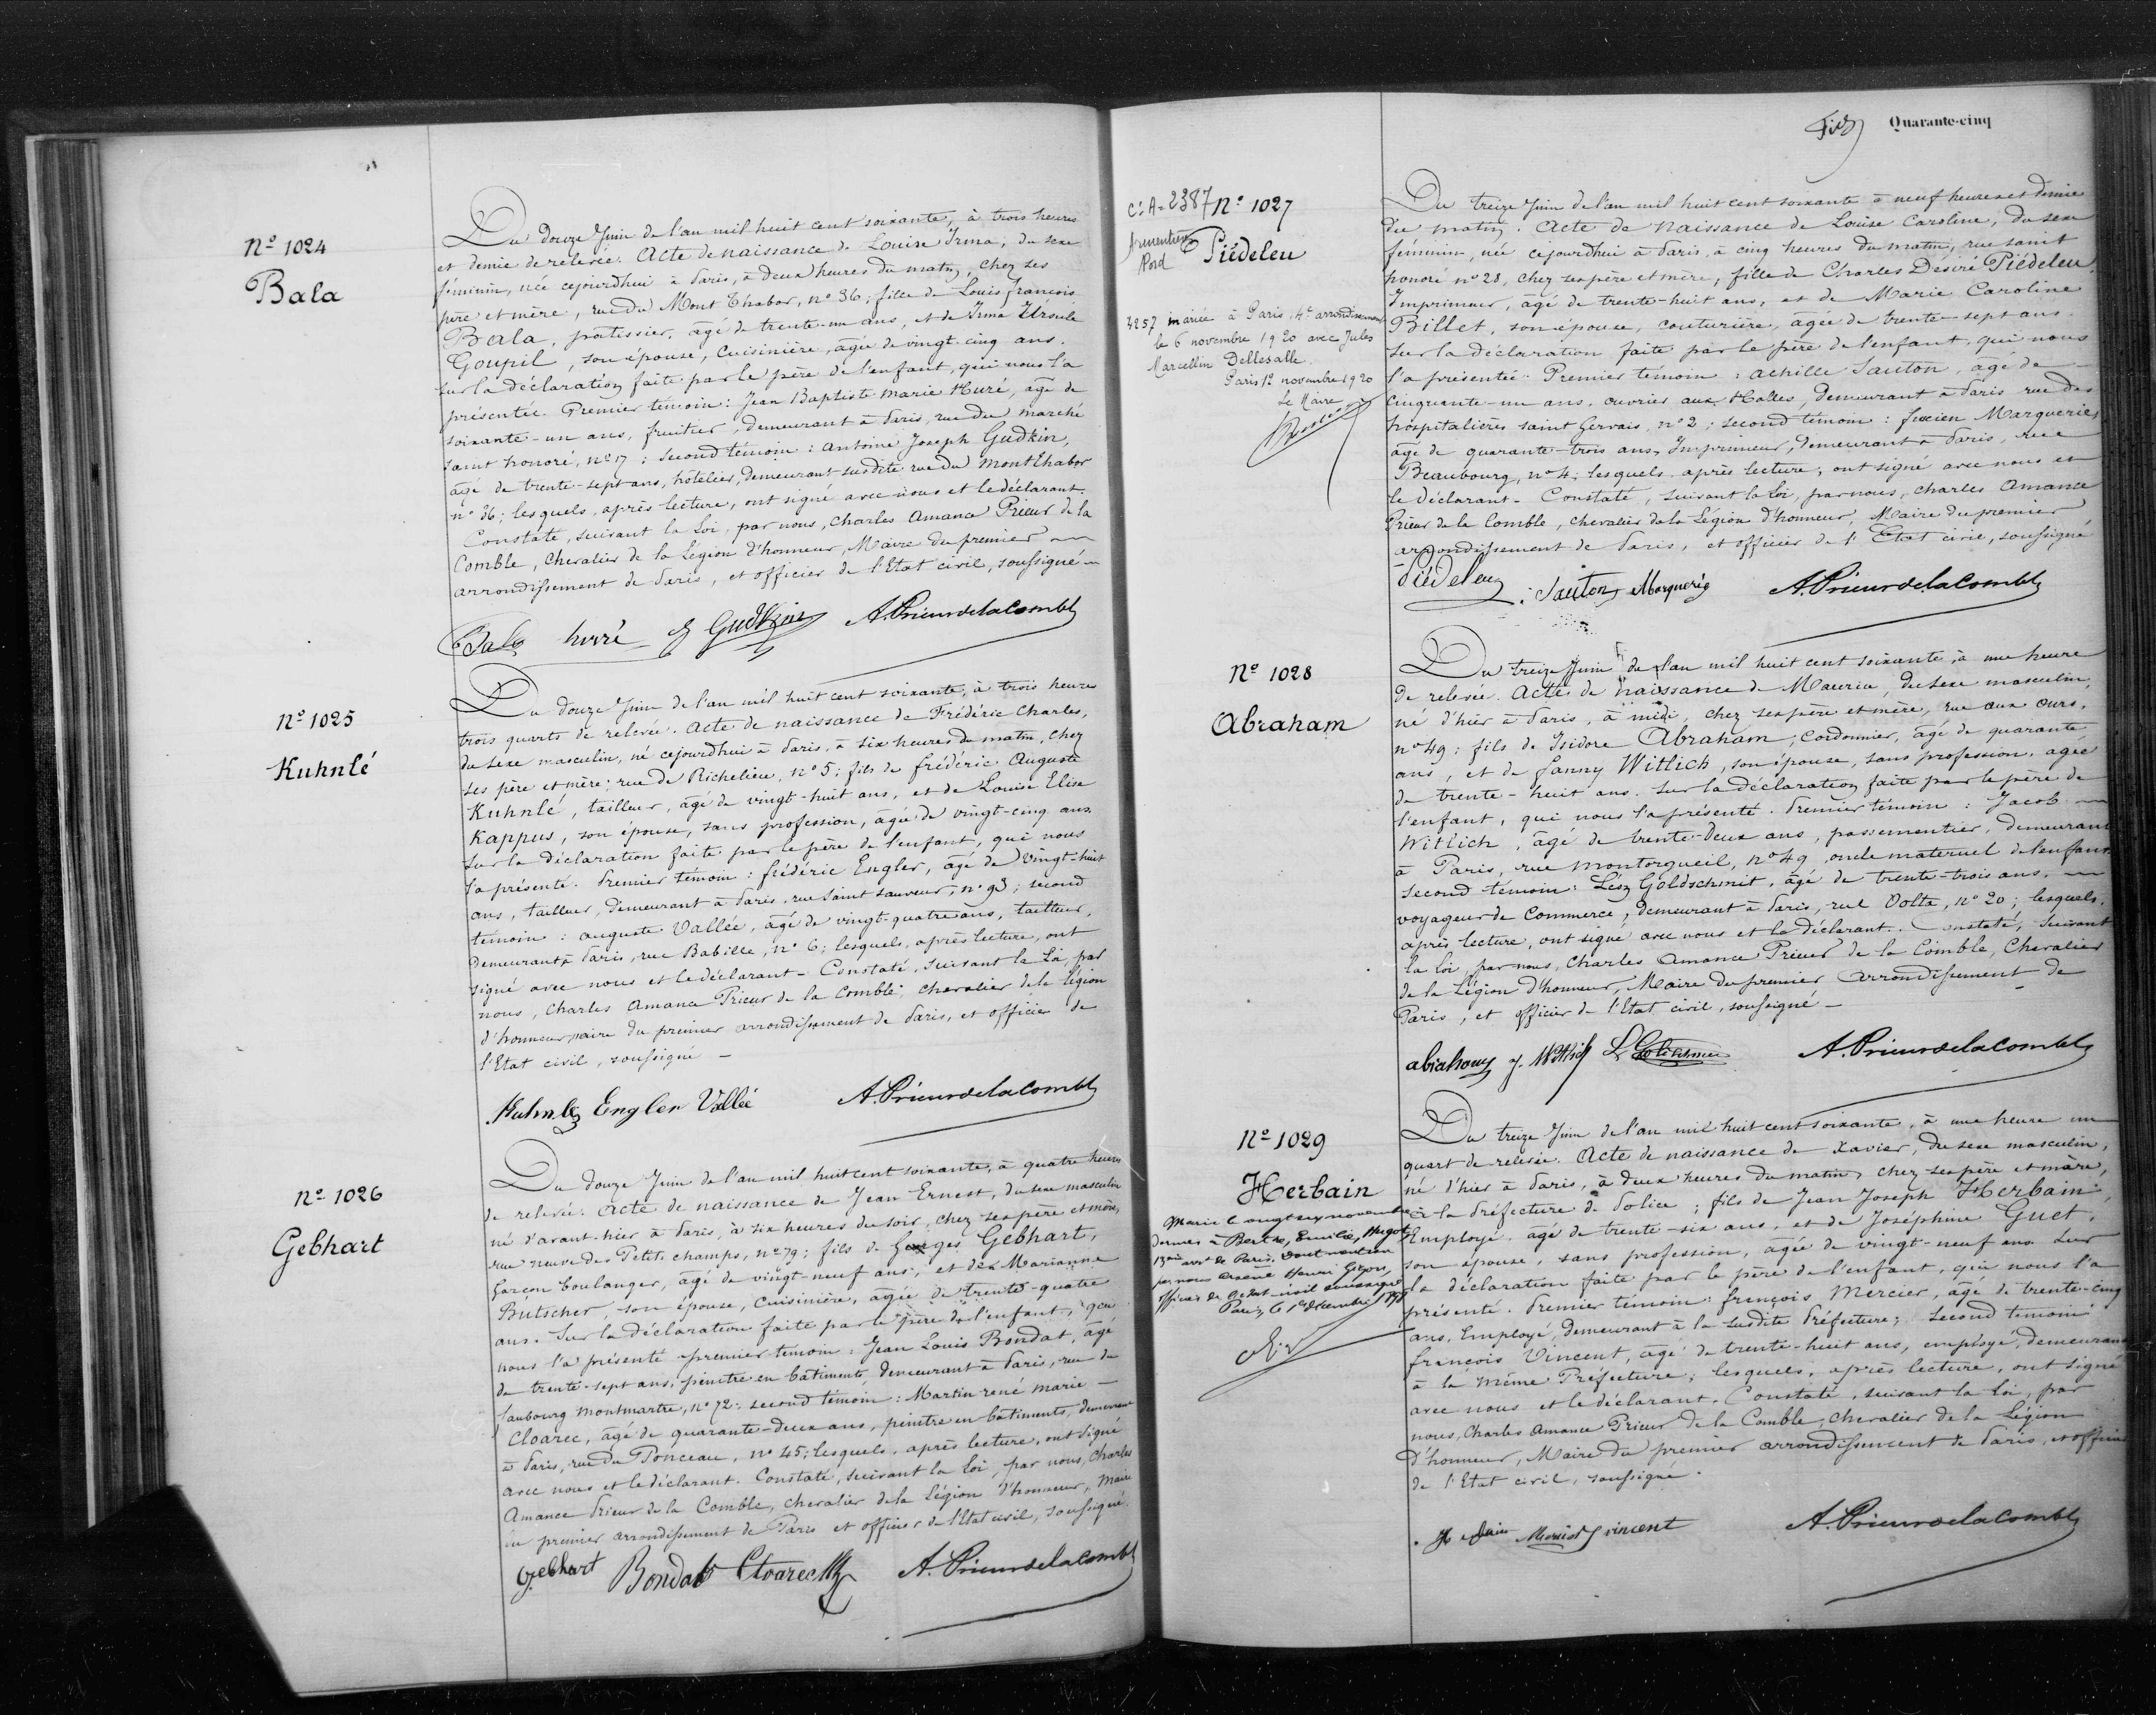 Nº 1024
Bala
Du douze Juin de l'an mil huit cent soixante, à trois heures
et demie de relevée. Acte de naissance de Louise Irma, du sexe
féminin, née cejourdhui à Paris, à deux heures du matin, chez ses
père et mère, rue du Mont Thabor, nº 36; fille de Louis françois
Bala, pâtissier, âgé de trente-un ans, et de Irma Ursule
Goupil, son épouse, Cuisinière, âgée de vingt-cinq ans.
Sur la déclaration faite par le père de l'enfant, qui nous l'a
présentée. Premier témoin: Jean Baptiste Marie Huré, âgé de
soixante-un ans, fruitier, demeurant à Paris, rue du marché
saint honoré, nº 17; second témoin: antoine Joseph Gudkin,
âgé de trente-sept ans, hôtelier, demeurant susdite rue du mont Thabor
nº 36; lesquels, après lecture, ont signé avec nous et le déclarant.
Constaté, suivant la Loi, par nous, Charles Amance Prieur de la
Comble, Chevalier de la Légion d'honneur, Maire du premier
arrondissement de Paris, et officier de l'Etat civil, soussigné
Bala huré Gudkin A. Prieur de la Comble
Nº 1025
Kuhnlé
Du douze Juin de l'an mil huit cent soixante, à trois heures
trois quarts de relevée. Acte de naissance de Frédéric Charles,
du sexe masculin, né cejourdhui à Paris, à six heures du matin, chez
ses père et mère, rue de Richelieu, nº 5; fils de frédéric Auguste
Kuhnlé, tailleur, âgé de vingt-huit ans, et de Louise Elise
Kappus, son épouse, sans profession, âgée de vingt-cinq ans.
Sur la déclaration faite par le père de l'enfant, qui nous
l'a présenté. Premier témoin: frédéric Engler, âgé de vingt-huit
ans, tailleur, demeurant à Paris, rue Saint Sauveur, nº 93; second
témoin: auguste Vallée, âgé de vingt-quatre ans, tailleur,
demeurant à Paris, rue Babille, nº 6; lesquels, après lecture, ont
signé avec nous et le déclarant - Constaté, suivant la Loi, par
nous, Charles Amance Prieur de la Comble, chevalier de la légion
d'honneur, maire du premier arrondissement de Paris, et officier de
l'Etat civil, soussigné -
Kuhnlé Engler Vallée A. Prieur de la Comble
Nº 1026
Gebhart
Du douze Juin de l'an mil huit cent soixante, à quatre heures
de relevée. Acte de naissance de Jean Ernest, du sexe masculin
né d'avant-hier à Paris, à six heures du soir, chez ses père et mère,
rue neuve des Petits champs, nº 79; fils de Georges Gebhart,
garçon boulanger, âgé de vingt-neuf ans, et de Marianne
Butscher son épouse, Cuisinière, âgée de trente-quatre
ans. Sur la déclaration faite par le père de l'enfant, qui
nous l'a présenté premier témoin: Jean Louis Bondat, âgé
de trente-sept ans, peintre en bâtiments, demeurant à Paris, rue du
faubourg montmartre, nº 72; second témoin: Martin rené marie -
Cloarec, âgé de quarante-deux ans, peintre en bâtiments, demeurant
à Paris, rue du Ponceau, nº 45; lesquels, après lecture, ont signé
avec nous et le déclarant. Constaté, suivant la loi, par nous, Charles
Amance Prieur de la Comble, chevalier de la Légion d'honneur, Maire
du premier arrondissement de Paris et officier de l'Etat civil, soussigné.
gebhart Bondat Cloarec A. Prieur de la Comble
Quarante-cinq
C: A = 2387
Armentières
Nord
Nº 1027
Piédeleu
4257 mariée à Paris, 4e arrondissement
le 6 novembre 1920 avec Jules
Marcellin Dellesalle
Paris 12 novembre 1920
Le Maire
Du treize Juin de l'an mil huit cent soixante à neuf heures et demie
du matin. Acte de naissance de Louise Caroline, du sexe
féminin, née cejourdhui à Paris, à cinq heures du matin, rue saint
honoré nº 28, chez ses père et mère, fille de Charles Désiré Piédeleu
Imprimeur, âgé de trente-huit ans, et de Marie Caroline
Billet, son épouse, couturière, âgée de trente-sept ans.
Sur la déclaration faite par le père de l'enfant, qui nous
l'a présentée. Premier témoin: achille Sauton, âgé de
cinquante-un ans, ouvrier aux Halles, demeurant à Paris rue des
hospitalières saint Gervais, nº 2; second témoin: Marquerie,
âgé de quarante-trois ans, Imprimeur, demeurant à Paris, rue
Beaubourg, nº 4; lesquels, après lecture, ont signé avec nous et
le déclarant - Constaté, suivant la Loi, par nous, Charles Amance
Prieur de la Comble, chevalier de la Légion d'honneur, Maire du premier
arrondissement de Paris, et officier de l'Etat civil, soussigné
Piédeleu Sauton Marquerie A. Prieur de la Comble
Nº 1028
Abraham
Du treize Juin de l'an mil huit cent soixante, à une heure
de relevée. Acte de naissance de Maurice, du sexe masculin,
né d'hier à Paris, à midi, chez ses père et mère, rue aux ours,
nº 49; fils de Isidore Abraham, Cordonnier, âgé de quarante
ans, et de fanny Wittich, son épouse, sans profession, âgée
de trente-huit ans. Sur la déclaration faite par le père de
l'enfant, qui nous l'a présenté. Premier témoin: Jacob
Wittich, âgé de trente-deux ans, passementier, demeurant
à Paris, rue montorgueil, nº 49, oncle maternel de l'enfant
second témoin: Goldschmit, âgé de trente-trois ans,
voyageur de Commerce, demeurant à Paris, rue Volta, nº 20; lesquels,
après lecture, ont signé avec nous et le déclarant. Constaté, suivant
la loi, par nous, Charles Amance Prieur de la Comble, Chevalier
de la Légion d'honneur, Maire du premier arrondissement de
Paris, et officier de l'Etat civil, soussigné -
abraham J. Wittich A. Prieur de la Comble
Nº 1029
Herbain
Marié le vingt six novembre
dernier à Berthe, Emilie,
13eme arrt de Paris. Dont mention
par nous Henri
officier de l'état civil soussigné
Paris, le 1er décembre
Du treize Juin de l'an mil huit cent soixante, à une heure un
quart de relevée. Acte de naissance de Xavier, du sexe masculin,
né d'hier à Paris, à deux heures du matin, chez ses père et mère,
à la Préfecture de Police; fils de Jean Joseph Herbain,
Employé, âgé de trente-six ans, et de Joséphine Guet,
son épouse, sans profession, âgée de vingt-neuf ans. Sur
la déclaration faite par le père de l'enfant, qui nous l'a
présenté. Premier témoin: françois Mercier, âgé de trente-cinq
ans, Employé, demeurant à la susdite Préfecture; Second témoin:
françois Vincent, âgé de trente-huit ans, employé, demeurant
à la même Préfecture; lesquels, après lecture, ont signé
avec nous et le déclarant. Constaté, suivant la loi, par
nous, Charles Amance Prieur de la Comble, chevalier de la Légion
d'honneur, Maire du premier arrondissement de Paris, et officier
de l'Etat civil, soussigné.
vincent A. Prieur de la Comble